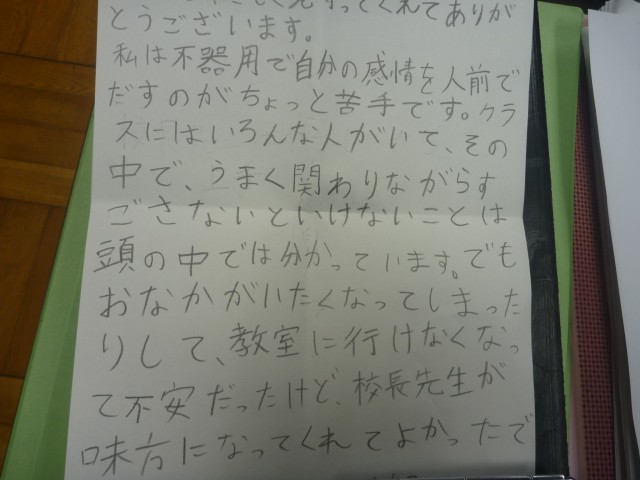 守ってくれてありが
とうございます。
私は不器用で自分の感情を人前で
だすのがちょっと苦手です。クラ
スにはいろんな人がいて、その
中で、うまく関わりながらす
ごさないといけないことは
頭の中では分かっています。でも
おなかがいたくなってしまった
りして、教室に行けなくなっ
て不安だったけど、校長先生が
味方になってくれてよかったで